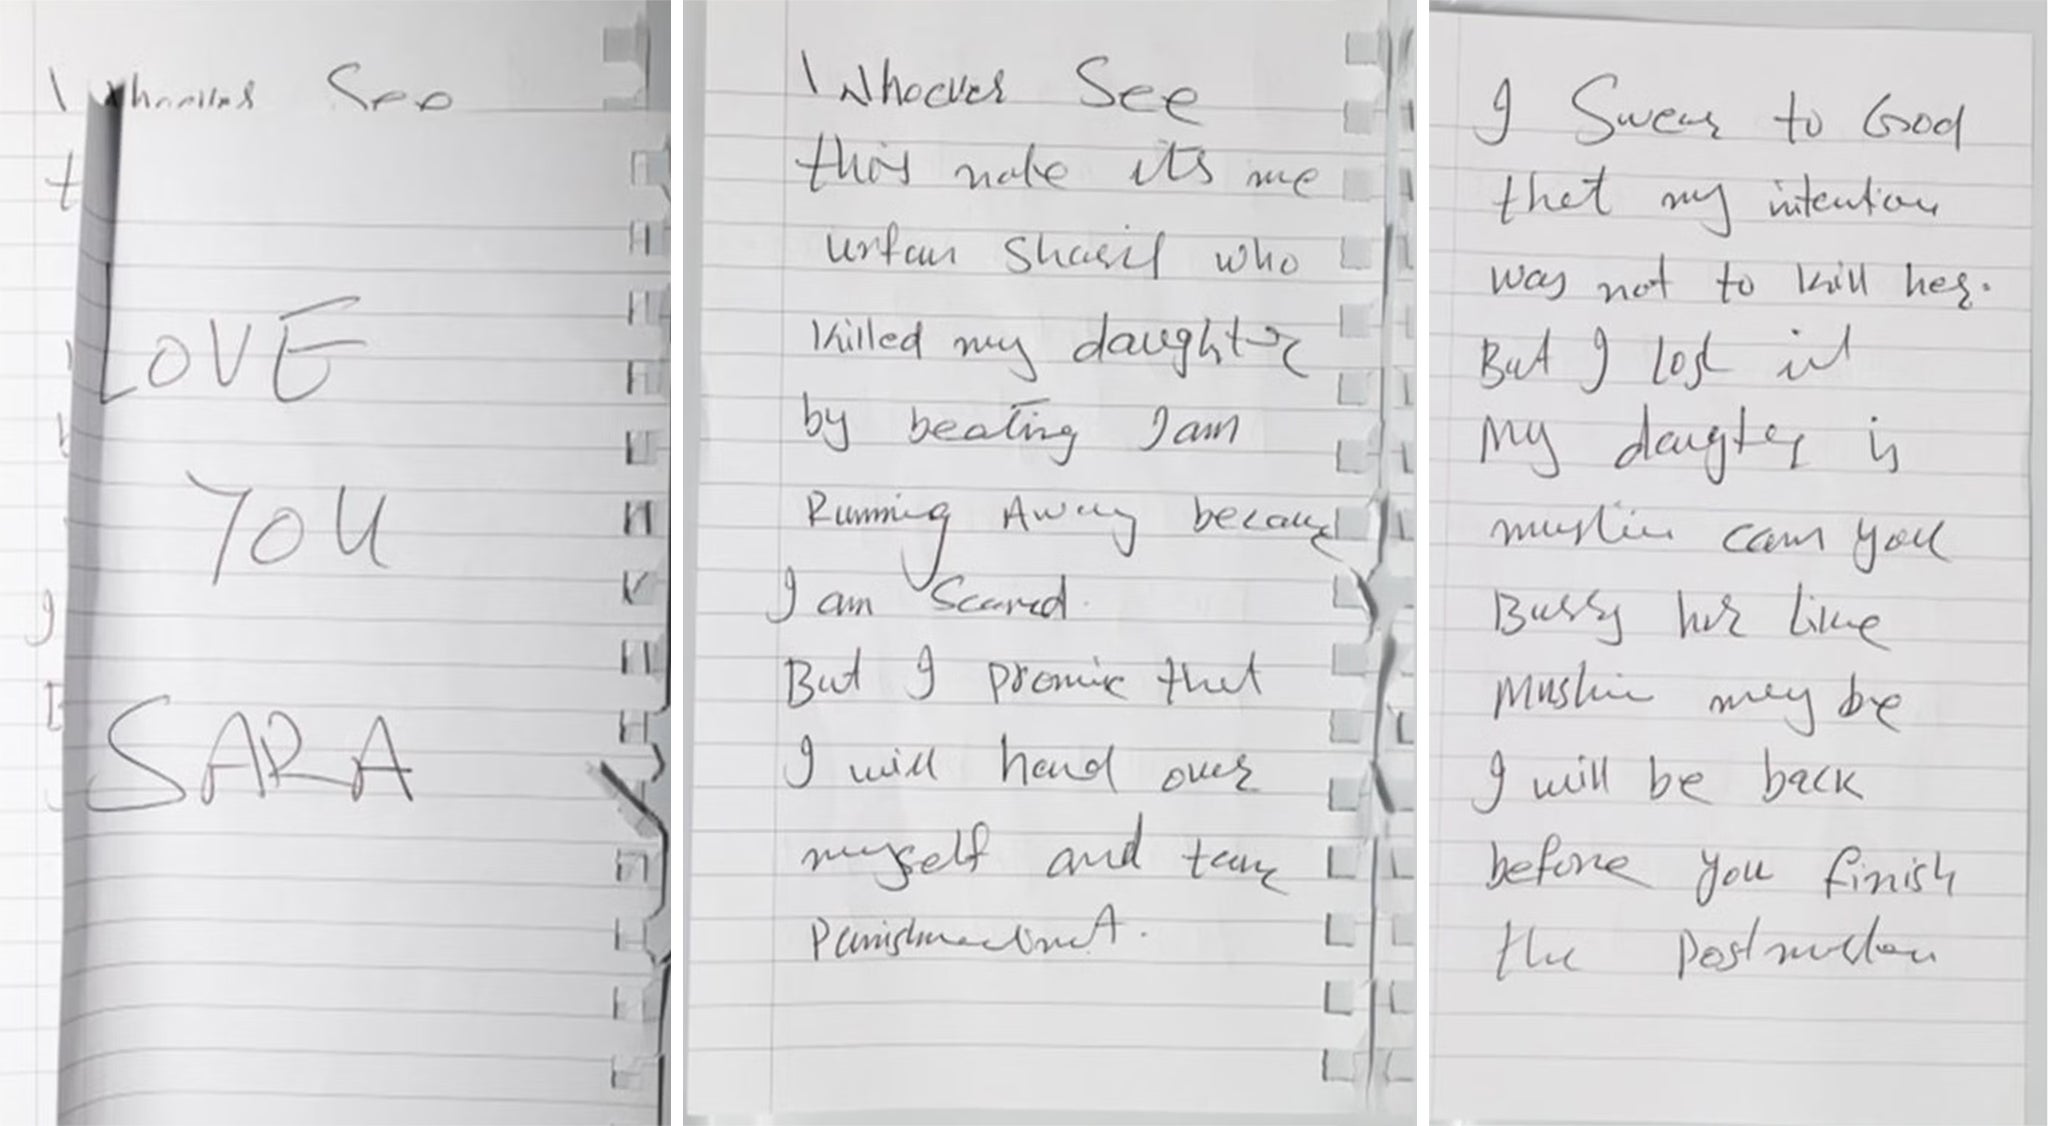 Whoever See
LOVE
YOU
SARA
Whoever See
this note its me
urfan Sharif who
killed my daughter
by beating I am
Running Away because
I am Scared.
But I promise that
I will hand over
myself and take
Punishment.
I Swear to God
that my intention
was not to kill her.
But I lost it
My daugter is
muslim can you
Burry her like
Muslim may be
I will be back
before you finish
the Postmortem